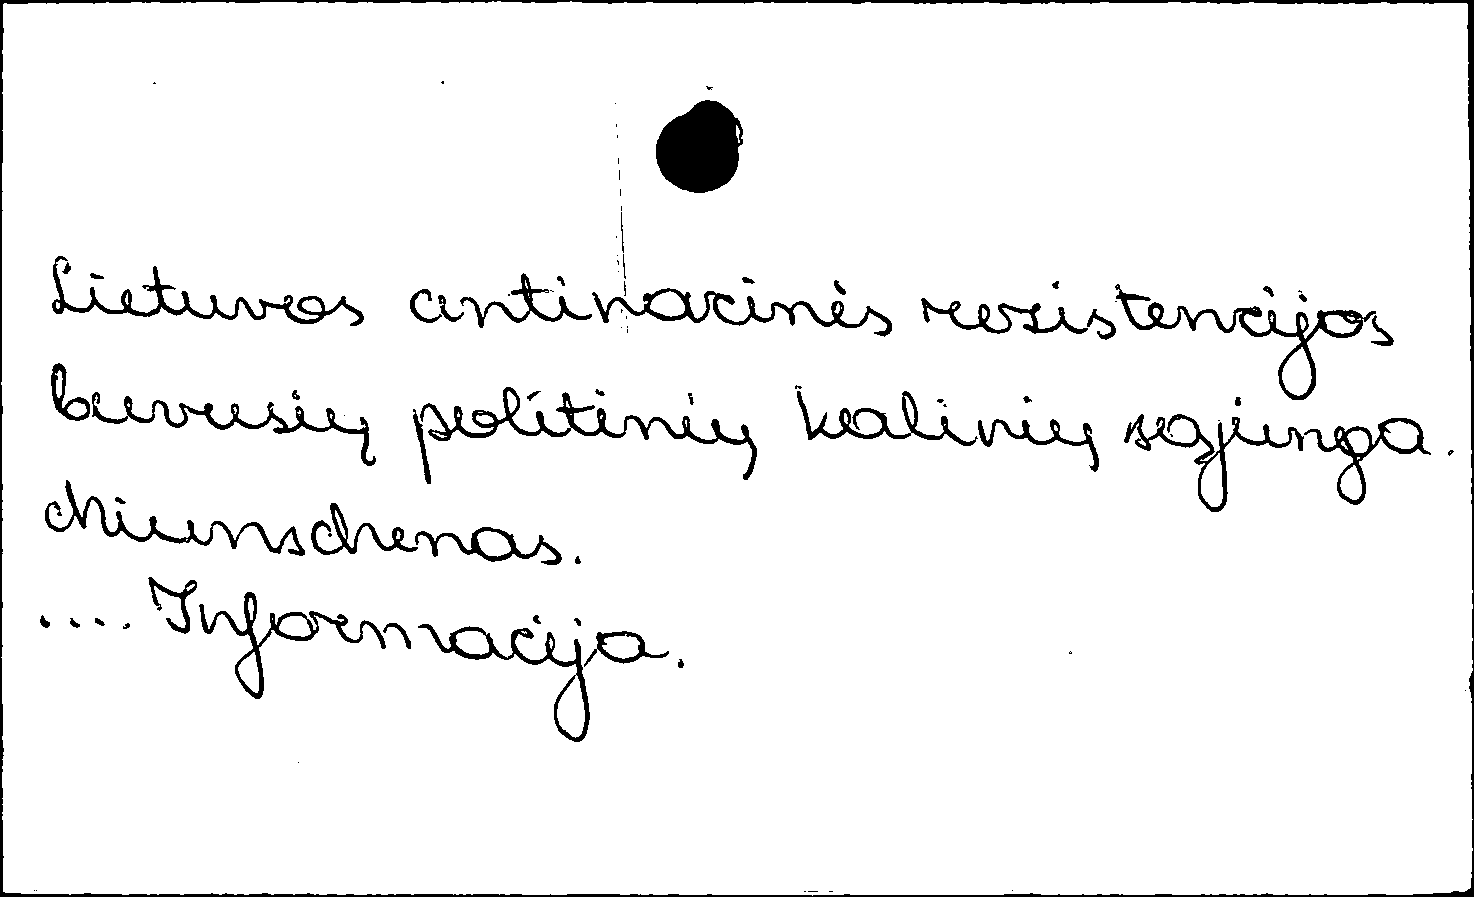 Lietuvos antinacinės rezistencijos
buvusių politinių kalinių sąjunga.
Miunschenas.
.... Informacija.